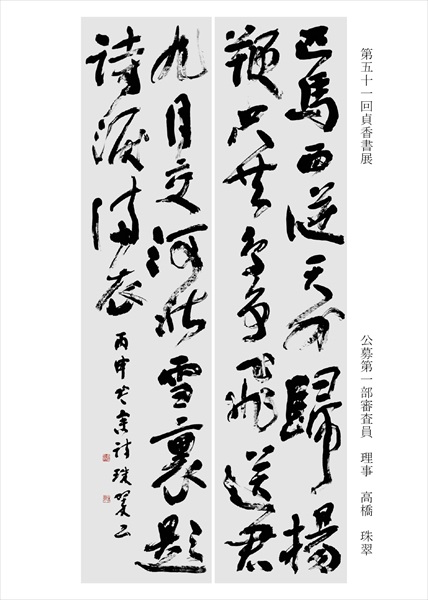 第五十一回貞香書展
公募第一部審査員 理事 高橋 珠翠
匹馬西従天外歸揚
鞭只共鳥争飛送君
九月交河北雪裏題
詩涙満衣
丙申岑参詩 珠翠書